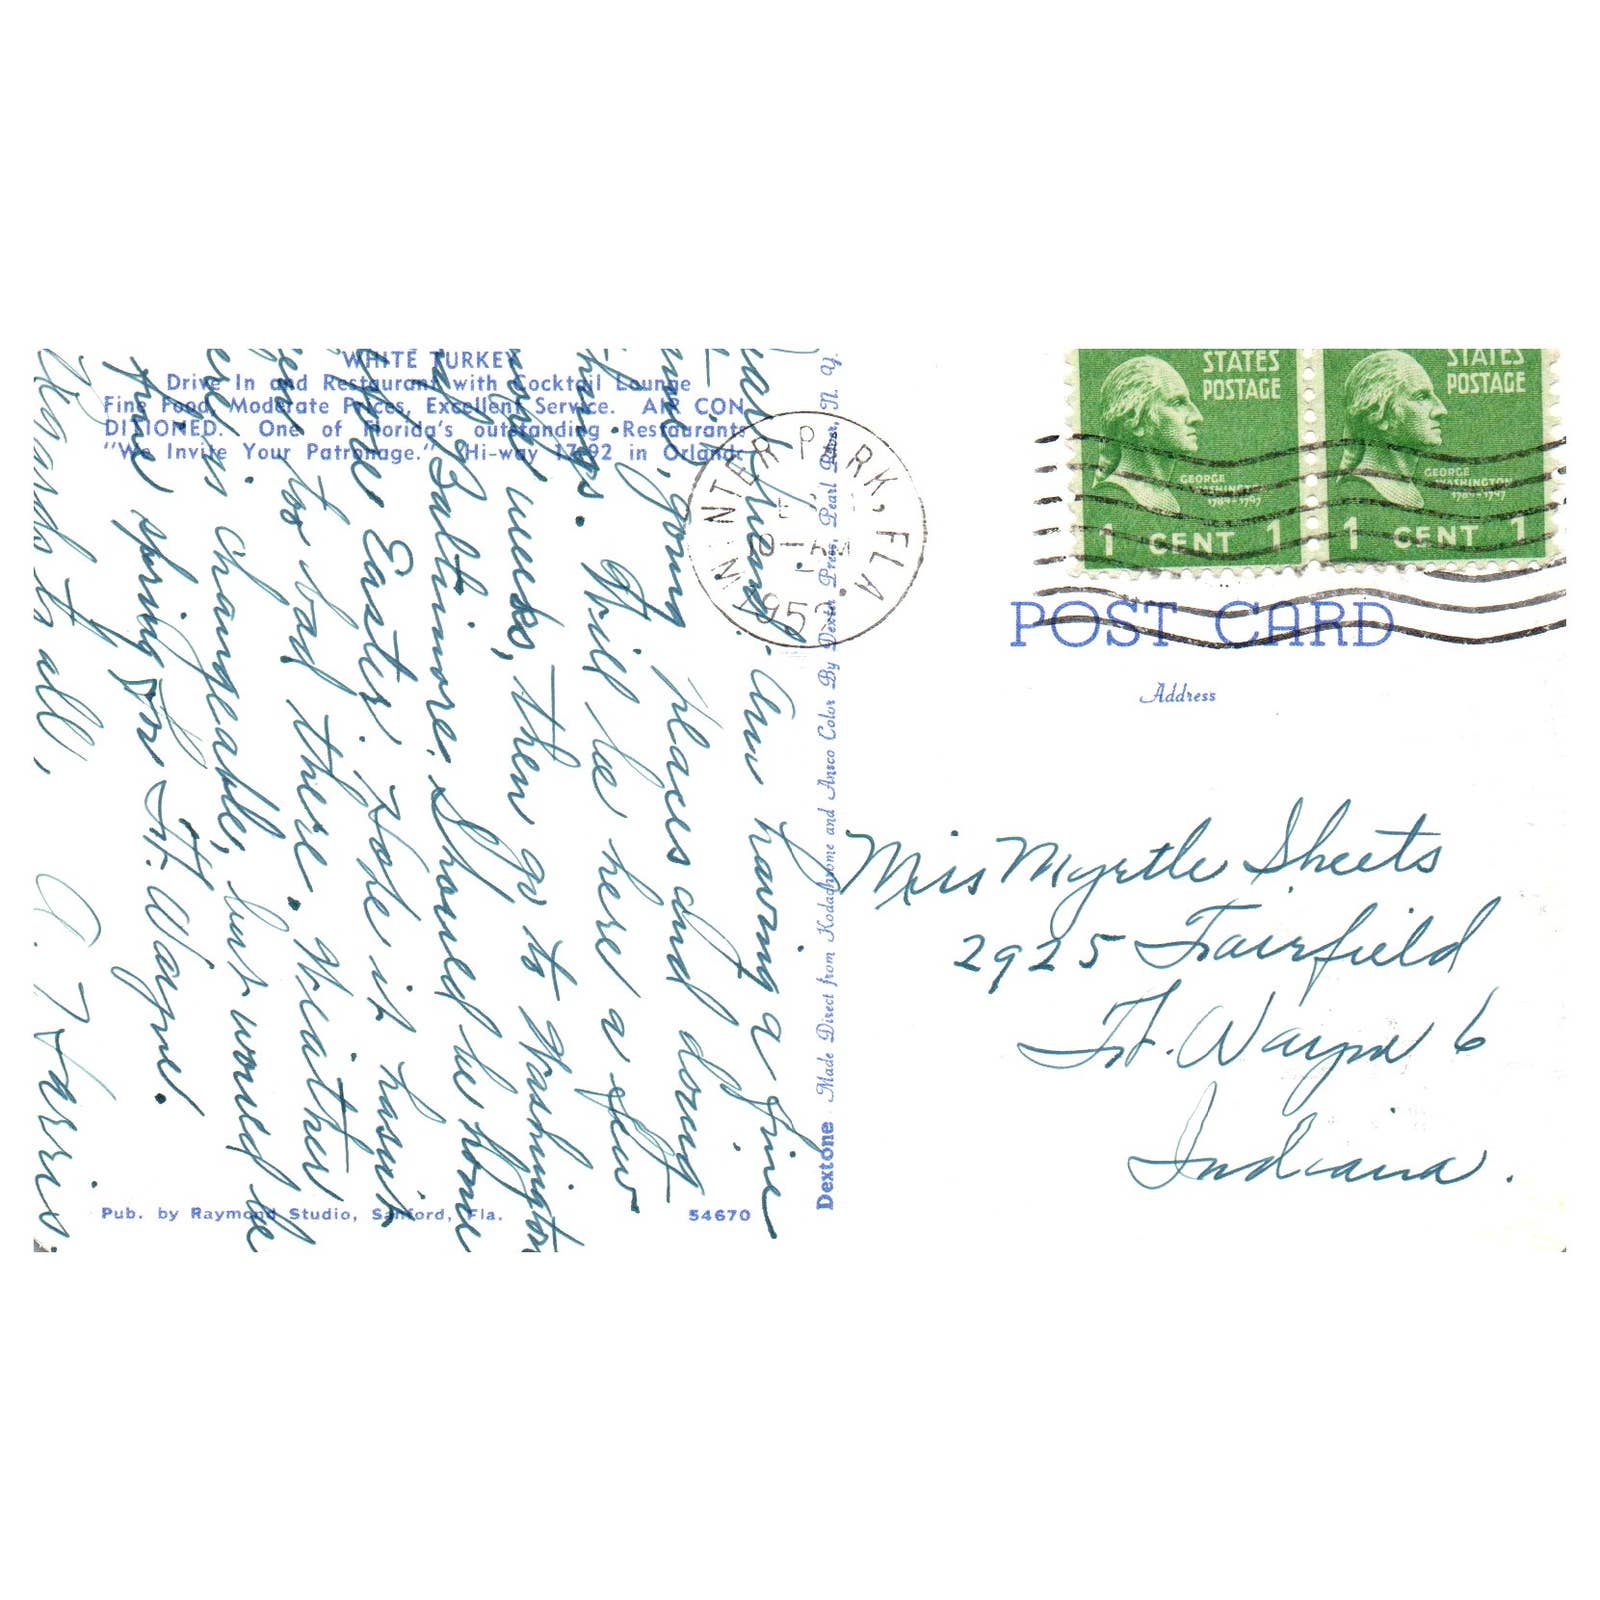 WHITE TURKEY
Drive In and Restaurant with Cocktail Lounge
Fine Food, Moderate Prices, Excellent Service. AIR CON
DITIONED. One of Florida's outstanding Restaurants
"We Invite Your Patronage." Hi-way 17-92 in Orlando
Am having a fine
going places and doing
things. Will be here a few
more weeks, then go to Washington
Baltimore. Should be home
before Easter. Hope it hasn't
been too bad there. Weather
here is changeable, but would be
fine spring for Ft. Wayne.
Regards to all,
A. Harris.
Pub. by Raymond Studio, Sanford, Fla.
54670
Dextone Made Direct from Kodachrome and Ansco Color By Dexter Press, Pearl River, N. Y.
WINTER PARK, FLA.
STATES
POSTAGE
GEORGE
WASHINGTON
1789-1797
1 CENT 1
STATES
POSTAGE
GEORGE
WASHINGTON
1789-1797
1 CENT 1
POST CARD
Address
Miss Myrtle Sheets
2925 Fairfield
Ft. Wayne 6
Indiana.